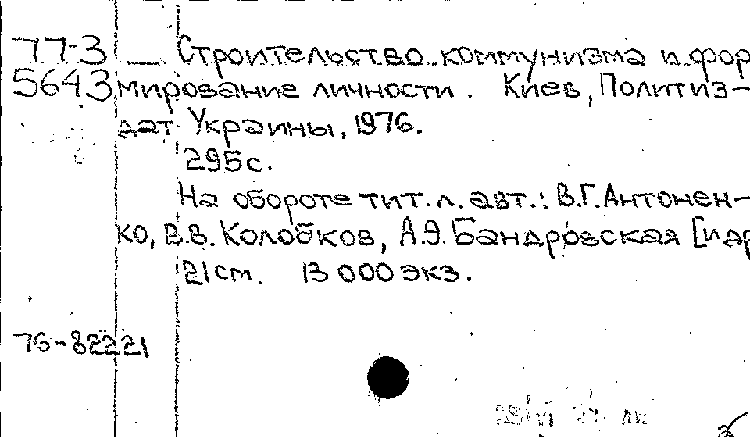 77-3 — Строительство коммунизма и фор
5643 мирование личности. Киев, Политиз-
дат Украины, 1976.
295с.
На обороте тит.л. авт.: В.Г.Антонен-
ко, В.В. Колобков, А.Э.Бандровская [и др
21см. 13 000экз.
76-82221